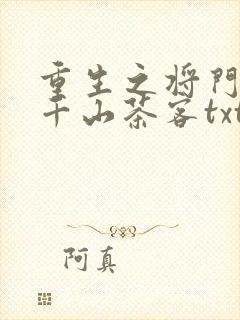 重生之将門
千山茶客txt
阿真